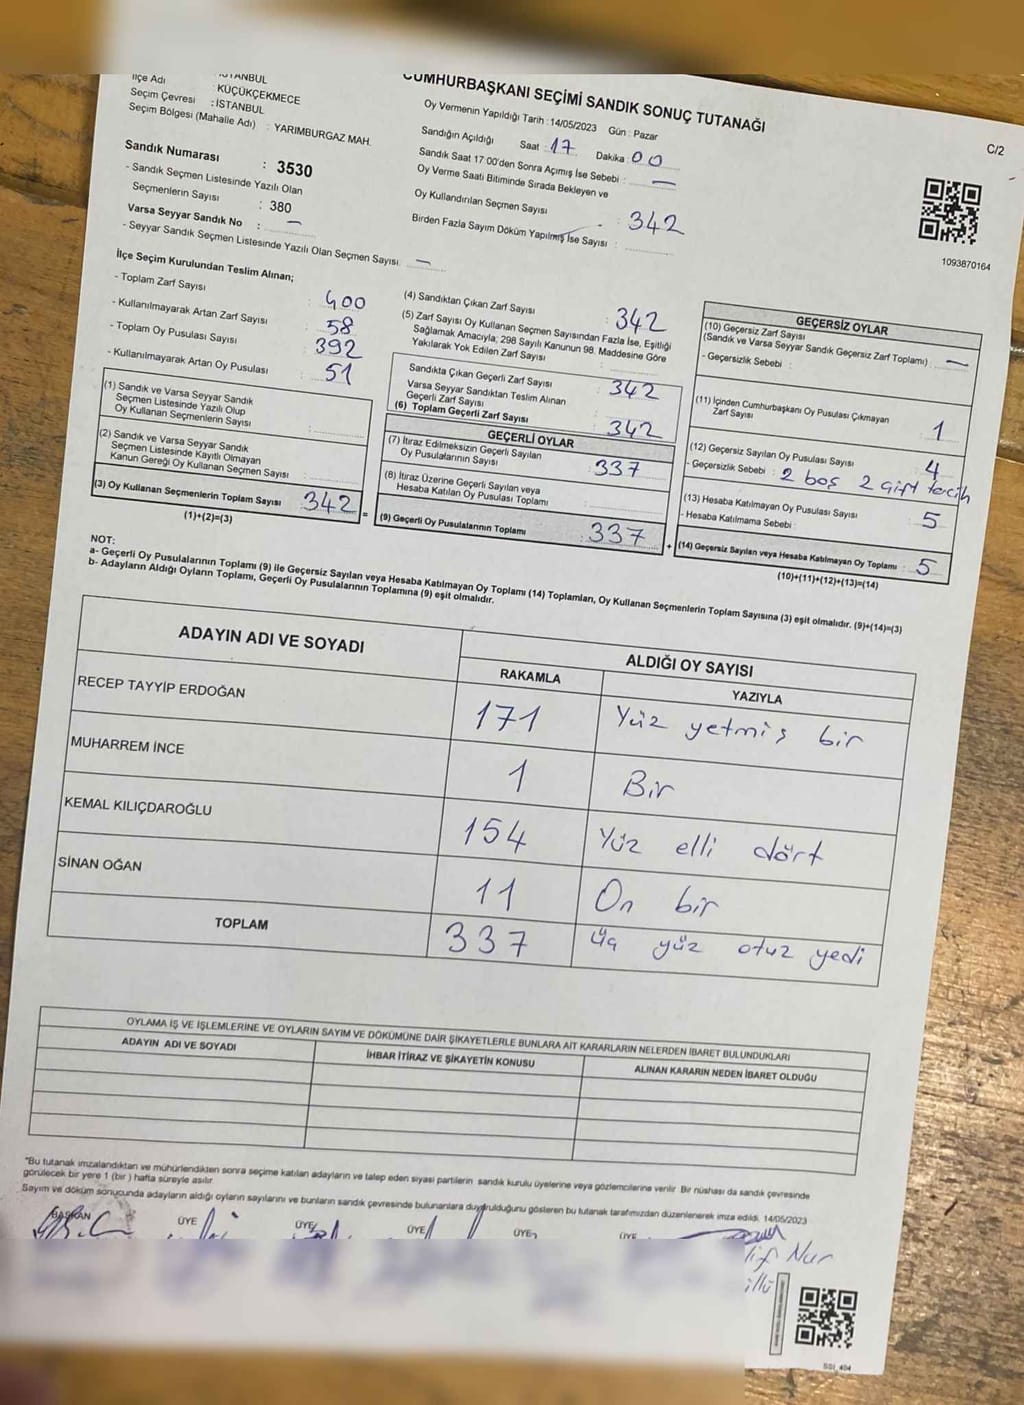 İlçe Adı
: İSTANBUL
: KÜÇÜKÇEKMECE
Seçim Çevresi : İSTANBUL
Seçim Bölgesi (Mahalle Adı) : YARIMBURGAZ MAH.
CUMHURBAŞKANI SEÇİMİ SANDIK SONUÇ TUTANAĞI
C/2
Oy Vermenin Yapıldığı Tarih : 14/05/2023 Gün : Pazar
Sandığın Açıldığı Saat : 17 Dakika : 00
Sandık Saat 17:00'den Sonra Açımış İse Sebebi : —
Oy Verme Saati Bitiminde Sırada Bekleyen ve
Oy Kullandırılan Seçmen Sayısı : 342
Birden Fazla Sayım Döküm Yapılmış İse Sayısı :
1093870164
Sandık Numarası : 3530
- Sandık Seçmen Listesinde Yazılı Olan
Seçmenlerin Sayısı : 380
Varsa Seyyar Sandık No : —
- Seyyar Sandık Seçmen Listesinde Yazılı Olan Seçmen Sayısı: —
İlçe Seçim Kurulundan Teslim Alınan;
- Toplam Zarf Sayısı : 400
- Kullanılmayarak Artan Zarf Sayısı : 58
- Toplam Oy Pusulası Sayısı : 392
- Kullanılmayarak Artan Oy Pusulası : 51
(1) Sandık ve Varsa Seyyar Sandık
Seçmen Listesinde Yazılı Olup
Oy Kullanan Seçmenlerin Sayısı :
(2) Sandık ve Varsa Seyyar Sandık
Seçmen Listesinde Kayıtlı Olmayan
Kanun Gereği Oy Kullanan Seçmen Sayısı :
(3) Oy Kullanan Seçmenlerin Toplam Sayısı : 342 =
(1)+(2)=(3)
(4) Sandıktan Çıkan Zarf Sayısı : 342
(5) Zarf Sayısı Oy Kullanan Seçmen Sayısından Fazla İse, Eşitliği
Sağlamak Amacıyla; 298 Sayılı Kanunun 98. Maddesine Göre
Yakılarak Yok Edilen Zarf Sayısı :
Sandıkta Çıkan Geçerli Zarf Sayısı : 342
Varsa Seyyar Sandıktan Teslim Alınan
Geçerli Zarf Sayısı :
(6) Toplam Geçerli Zarf Sayısı : 342
GEÇERLİ OYLAR
(7) İtiraz Edilmeksizin Geçerli Sayılan
Oy Pusulalarının Sayısı : 337
(8) İtiraz Üzerine Geçerli Sayılan veya
Hesaba Katılan Oy Pusulası Toplamı :
(9) Geçerli Oy Pusulalarının Toplamı : 337 +
GEÇERSİZ OYLAR
(10) Geçersiz Zarf Sayısı
(Sandık ve Varsa Seyyar Sandık Geçersiz Zarf Toplamı) : —
- Geçersizlik Sebebi :
(11) İçinden Cumhurbaşkanı Oy Pusulası Çıkmayan
Zarf Sayısı : 1
(12) Geçersiz Sayılan Oy Pusulası Sayısı : 4
- Geçersizlik Sebebi : 2 boş 2 çift tercih
(13) Hesaba Katılmayan Oy Pusulası Sayısı : 5
- Hesaba Katılmama Sebebi :
(14) Geçersiz Sayılan veya Hesaba Katılmayan Oy Toplamı : 5
(10)+(11)+(12)+(13)=(14)
NOT:
a- Geçerli Oy Pusulalarının Toplamı (9) ile Geçersiz Sayılan veya Hesaba Katılmayan Oy Toplamı (14) Toplamları, Oy Kullanan Seçmenlerin Toplam Sayısına (3) eşit olmalıdır. (9)+(14)=(3)
b- Adayların Aldığı Oyların Toplamı, Geçerli Oy Pusulalarının Toplamına (9) eşit olmalıdır.
ADAYIN ADI VE SOYADI
ALDIĞI OY SAYISI
RAKAMLA YAZIYLA
RECEP TAYYİP ERDOĞAN 171 Yüz yetmiş bir
MUHARREM İNCE 1 Bir
KEMAL KILIÇDAROĞLU 154 Yüz elli dört
SİNAN OĞAN 11 On bir
TOPLAM 337 üç yüz otuz yedi
OYLAMA İŞ VE İŞLEMLERİNE VE OYLARIN SAYIM VE DÖKÜMÜNE DAİR ŞİKAYETLERLE BUNLARA AİT KARARLARIN NELERDEN İBARET BULUNDUKLARI
ADAYIN ADI VE SOYADI İHBAR İTİRAZ VE ŞİKAYETİN KONUSU ALINAN KARARIN NEDEN İBARET OLDUĞU
"Bu tutanak imzalandıktan ve mühürlendikten sonra seçime katılan adayların ve talep eden siyasi partilerin sandık kurulu üyelerine veya gözlemcilerine verilir. Bir nüshası da sandık çevresinde
görülecek bir yere 1 (bir) hafta süreyle asılır.
Sayım ve döküm sonucunda adayların aldığı oyların sayılarını ve bunların sandık çevresinde bulunanlara duyurulduğunu gösteren bu tutanak tarafımızdan düzenlenerek imza edildi. 14/05/2023
BAŞKAN ÜYE ÜYE ÜYE ÜYE ÜYE
Nur